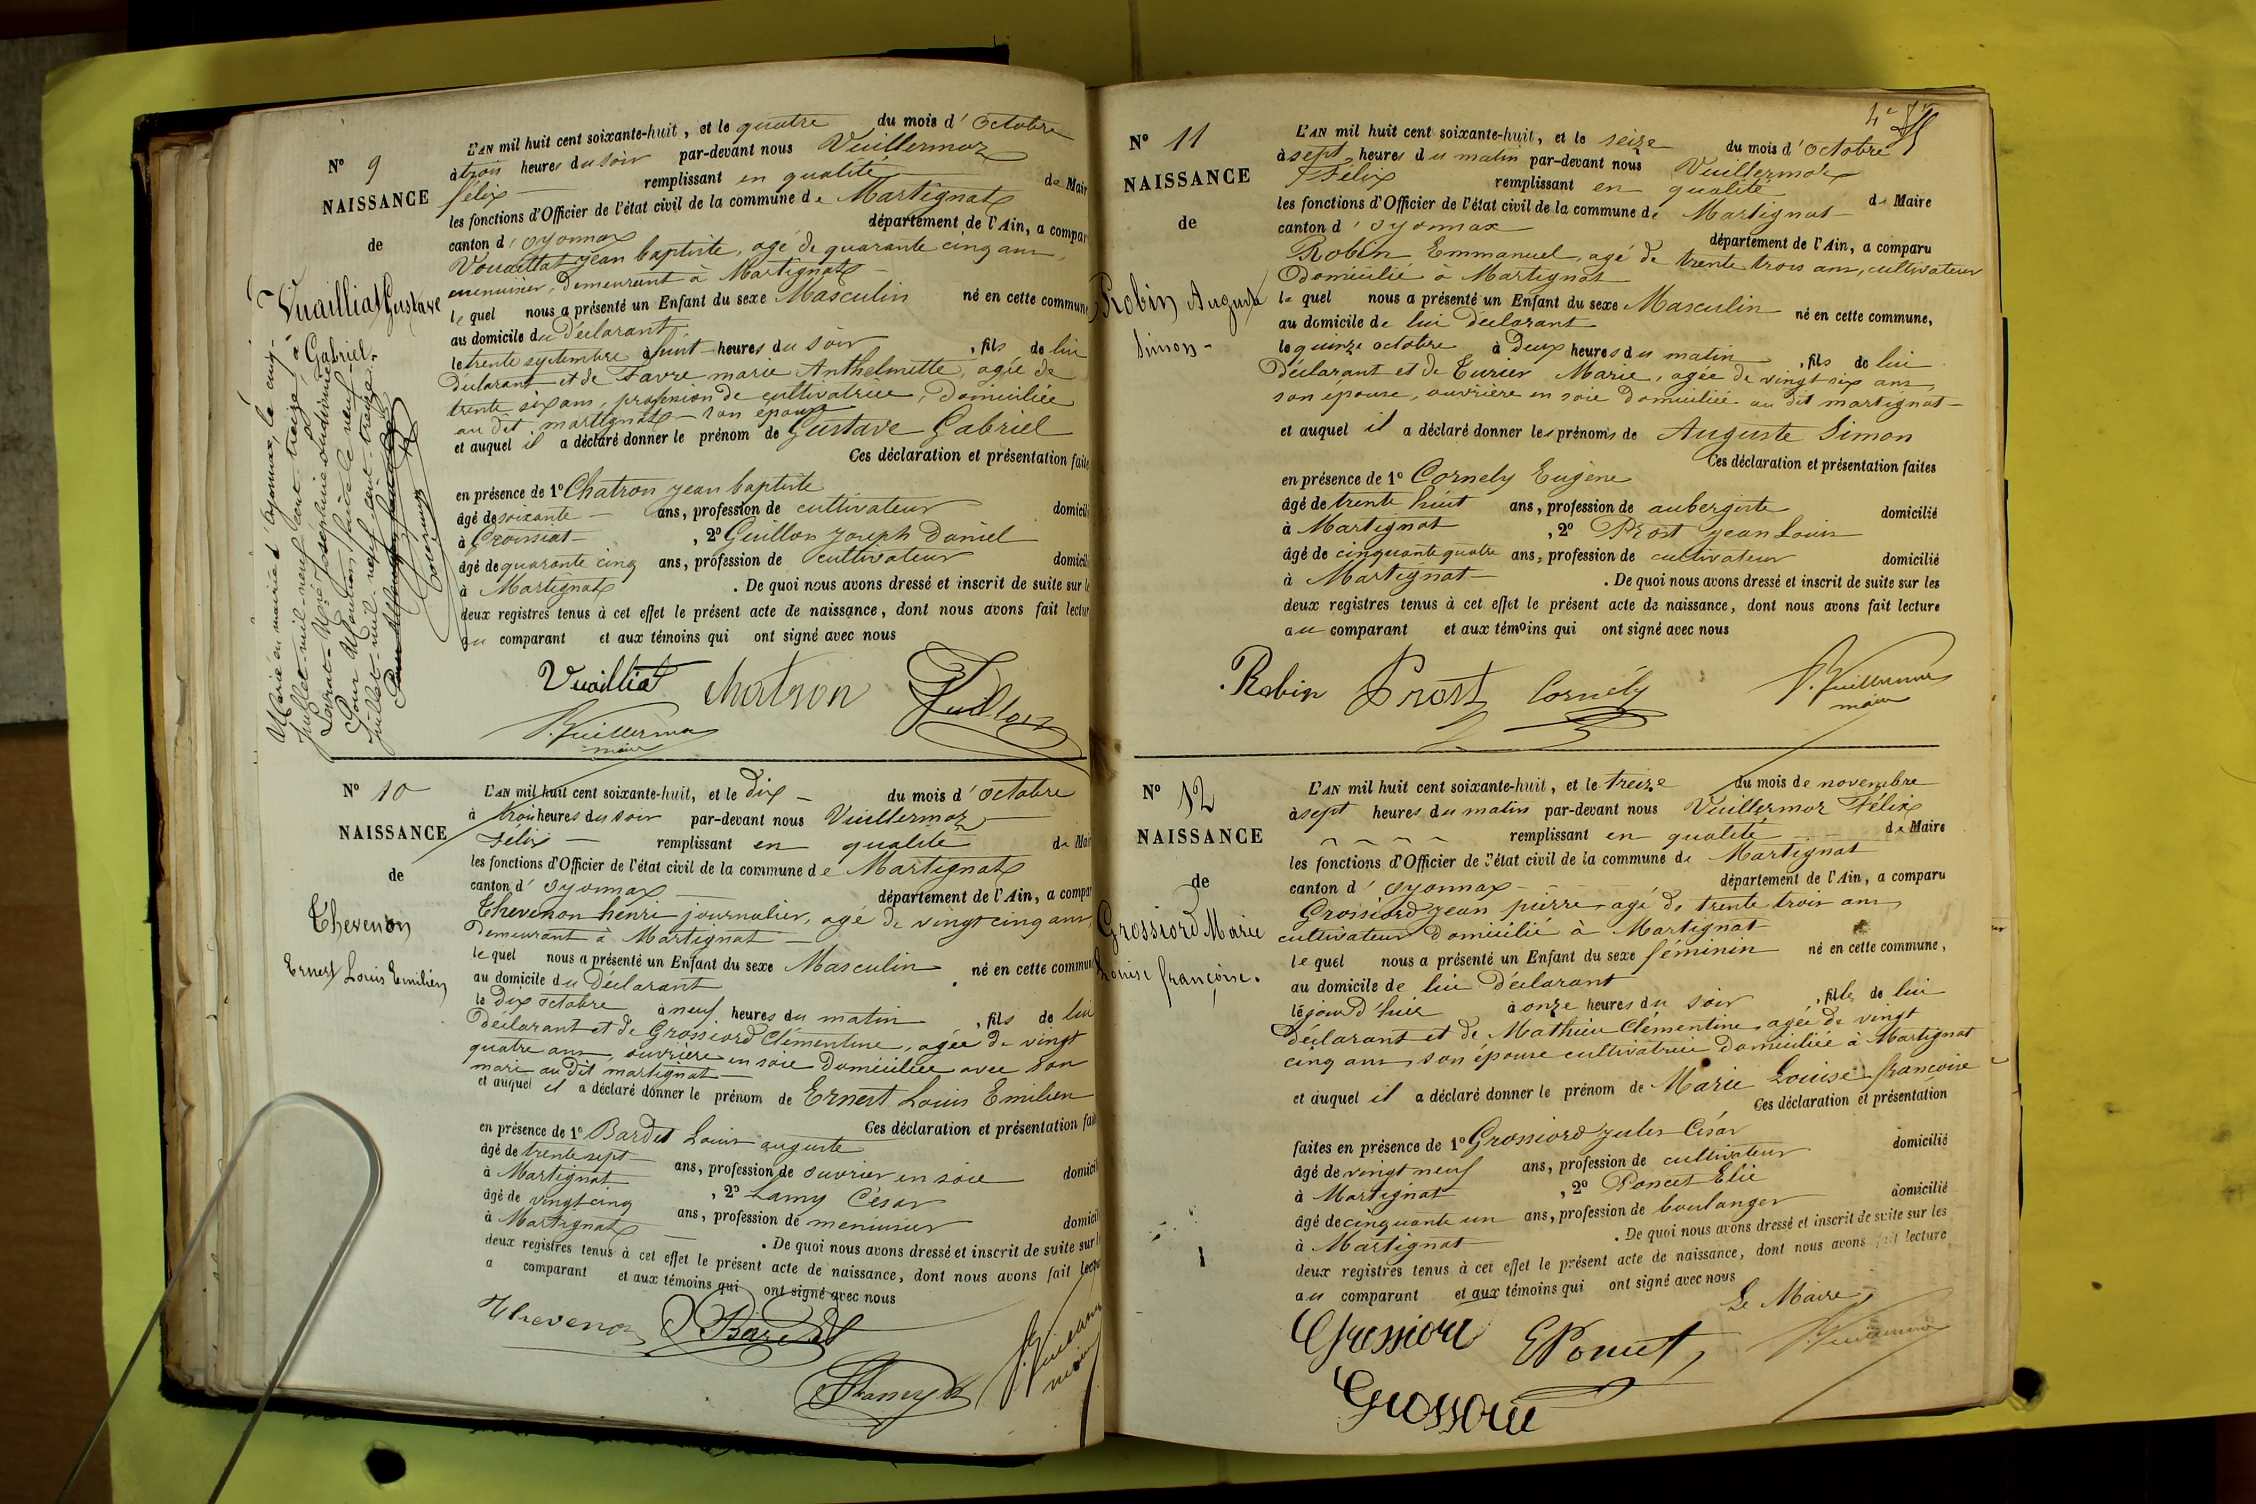 N° 9
NAISSANCE
de
Vuailliat Gustave
Gabriel
Marié en mairie d'Oyonnax, le cinq
juillet mil neuf cent treize, à
Pour Mention faite le neuf
juillet mil neuf cent treize.
L'AN mil huit cent soixante-huit, et le quatre du mois d' Octobre
à trois heures du soir par-devant nous Vuillermoz
félix remplissant en qualité de Mair
les fonctions d'Officier de l'état civil de la commune de Martignat
canton d' oyonnax département de l'Ain, a compar
Vouaillat jean baptiste, agé de quarante cinq ans,
menuisier, demeurant à Martignat
le quel nous a présenté un Enfant du sexe Masculin né en cette commune
au domicile du Déclarant
le trente septembre à huit heures du soir , fils de lui
Déclarant et de Favre marie Anthelmette, agée de
trente six ans, profession de cultivatrice, Domiciliée
au dit martignat son épouse
et auquel il a déclaré donner le prénom de Gustave Gabriel
Ces déclaration et présentation faite
en présence de 1° Chatron jean baptiste
âgé de soixante ans, profession de cultivateur domicili
à Croissiat , 2° Guillon Joseph Daniel
âgé de quarante cinq ans, profession de cultivateur domicili
à Martignat . De quoi nous avons dressé et inscrit de suite sur le
deux registres tenus à cet effet le présent acte de naissance, dont nous avons fait lectur
au comparant et aux témoins qui ont signé avec nous
Vuailliat chatron Guillon
F. Vuillermoz
maire
N° 10
NAISSANCE
de
Thevenon
Ernest Louis Emilien
L'AN mil huit cent soixante-huit, et le Dix du mois d' octobre
à trois heures du soir par-devant nous Vuillermoz
Félix remplissant en qualité de Mair
les fonctions d'Officier de l'état civil de la commune de Martignat
canton d' oyonnax département de l'Ain, a compar
Thevenon henri journalier, agé de vingt cinq ans,
Demeurant à Martignat
le quel nous a présenté un Enfant du sexe Masculin né en cette commun
au domicile du Déclarant
le Dix octobre à neuf heures du matin , fils de lui
Déclarant et de Grossiord Clémentine, agée de vingt
quatre ans, ouvrière en soie Domiciliée avec son
mari au dit martignat
et auquel il a déclaré donner le prénom de Ernest Louis Emilien
Ces déclaration et présentation fai
en présence de 1° Bardet Louis auguste
âgé de trente sept ans, profession de ouvrier en soie domici
à Martignat , 2° Lamy César
âgé de vingt cinq ans, profession de menuisier domici
à Martignat . De quoi nous avons dressé et inscrit de suite sur l
deux registres tenus à cet effet le présent acte de naissance, dont nous avons fait lectu
a comparant et aux témoins qui ont signé avec nous
Thevenon Bardet
Lamy F. Vuillermoz
maire
N° 11
NAISSANCE
de
Robin Auguste
Simon
L'AN mil huit cent soixante-huit, et le seize du mois d' octobre
à sept heures du matin par-devant nous Vuillermoz
Félix remplissant en qualité de Maire
les fonctions d'Officier de l'état civil de la commune de Martignat
canton d' oyonnax département de l'Ain, a comparu
Robin Emmanuel, agé de trente trois ans, cultivateur
Domicilié à Martignat
le quel nous a présenté un Enfant du sexe Masculin né en cette commune,
au domicile de lui Déclarant
le quinze octobre à Deux heures du matin , fils de lui
Déclarant et de Curier Marie, agée de vingt six ans,
son épouse, ouvrière en soie Domiciliée au dit martignat
et auquel il a déclaré donner les prénoms de Auguste Simon
Ces déclaration et présentation faites
en présence de 1° Cornely Eugène
âgé de trente huit ans, profession de aubergiste domicilié
à Martignat , 2° Prost jean Louis
âgé de cinquante quatre ans, profession de cultivateur domicilié
à Martignat . De quoi nous avons dressé et inscrit de suite sur les
deux registres tenus à cet effet le présent acte de naissance, dont nous avons fait lecture
au comparant et aux témoins qui ont signé avec nous
Robin Prost Cornély F. Vuillermoz
maire
N° 12
NAISSANCE
de
Grossiord Marie
Louise françoise.
L'AN mil huit cent soixante-huit, et le treize du mois de novembre
à sept heures du matin par-devant nous Vuillermoz Félix
remplissant en qualité de Maire
les fonctions d'Officier de l'état civil de la commune de Martignat
canton d' oyonnax département de l'Ain, a comparu
Grossiord jean pierre, agé de trente trois ans,
cultivateur Domicilié à Martignat
le quel nous a présenté un Enfant du sexe féminin né en cette commune,
au domicile de lui Déclarant
le jour d'hier à onze heures du soir , fille de lui
Déclarant et de Mathieu Clémentine, agée de vingt
cinq ans, son épouse cultivatrice Domiciliée à Martignat
et auquel il a déclaré donner le prénom de Marie Louise françoise
Ces déclaration et présentation
faites en présence de 1° Grossiord jules César
âgé de vingt neuf ans, profession de cultivateur domicilié
à Martignat , 2° Poncet Elie
âgé de cinquante un ans, profession de boulanger domicilié
à Martignat . De quoi nous avons dressé et inscrit de suite sur les
deux registres tenus à cet effet le présent acte de naissance, dont nous avons fait lecture
au comparant et aux témoins qui ont signé avec nous
Le Maire
Grossiord E Poncet F. Vuillermoz
Grossiord